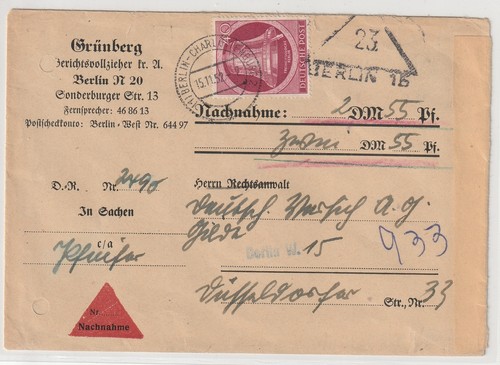 Grünberg
Gerichtsvollzieher kr. A.
Berlin N 20
Sonderburger Str. 13
Fernsprecher: 46 86 13
Postscheckkonto: Berlin - West Nr. 644 97
40
DEUTSCHE POST
BERLIN-CHARLOTTENBURG
15.11.52
23
BERLIN 15
Nachnahme: 2 DM 55 Pf.
zwei DM 55 Pf.
D.-R. Nr. 2490
In Sachen
c/a
Pfeiffer
Herrn Rechtsanwalt
Deutsch. Versich A. G.
Gilde
Berlin W. 15
933
Düsseldorfer Str., Nr. 33
Nr
Nachnahme